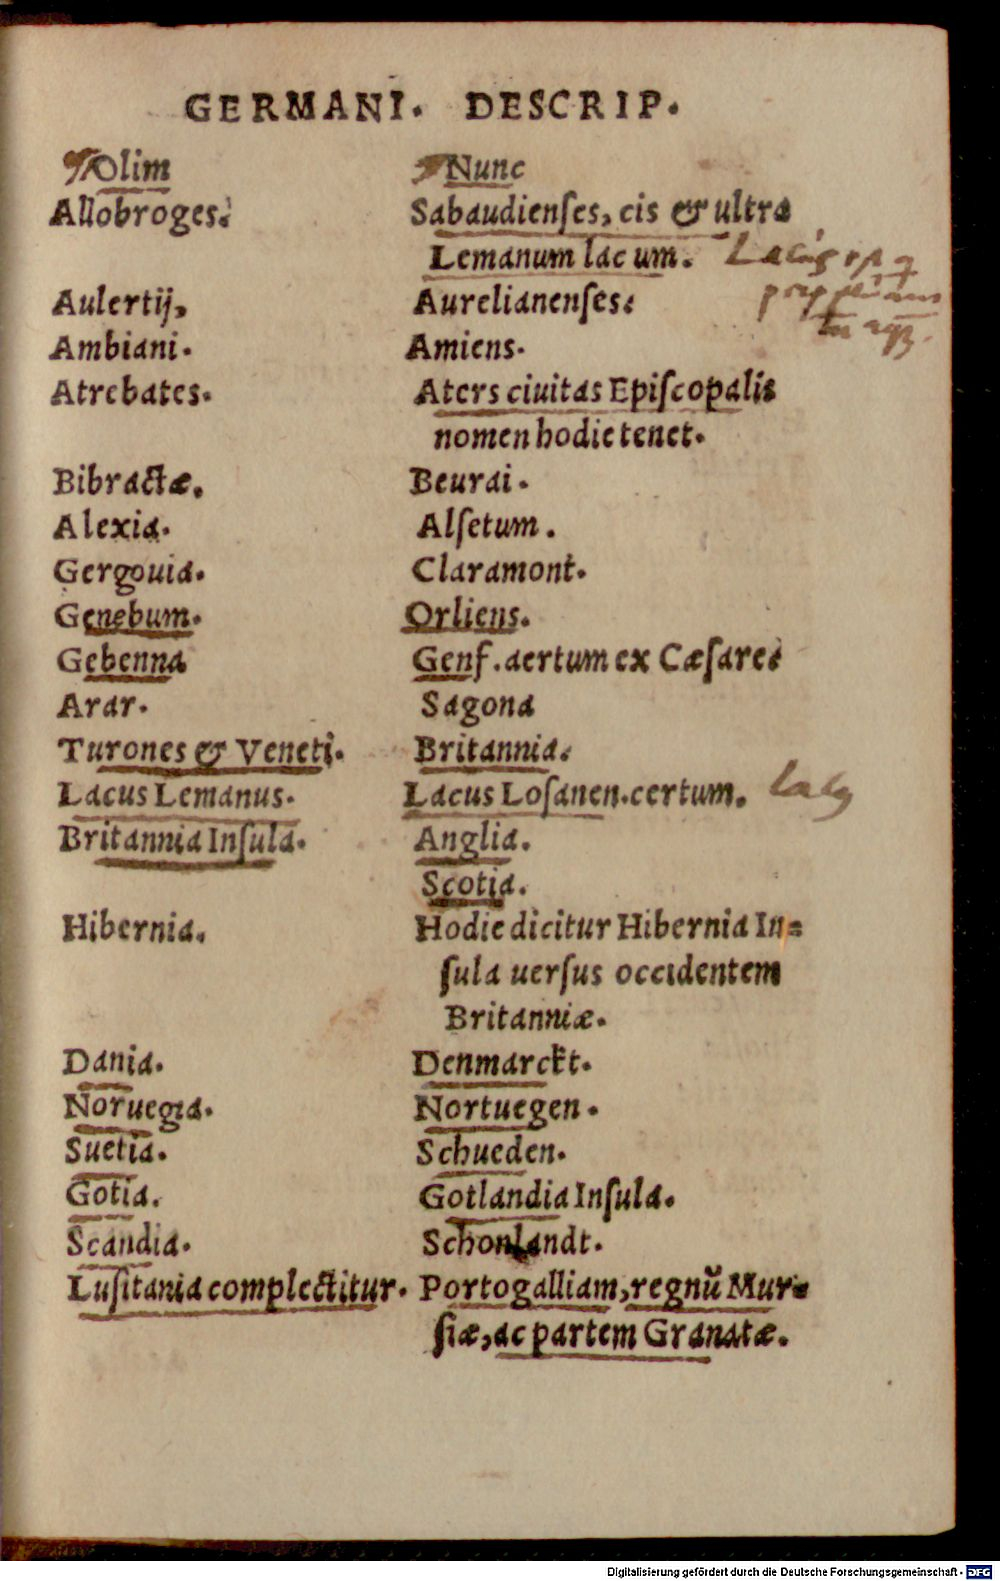 GERMANI. DESCRIP.
Olim Nunc
Allobroges. Sabaudienſes, cis & ultra
Lemanum lacum.
Aulertij, Aurelianenſes.
Ambiani. Amiens.
Atrebates. Aters ciuitas Epiſcopalis
nomen hodie tenet.
Bibractæ. Beurai.
Alexia. Alſetum.
Gergouia. Claramont.
Genebum. Orliens.
Gebenna Genf. aertum ex Cæſare.
Arar. Sagona
Turones & Veneti. Britannia.
Lacus Lemanus. Lacus Loſanen. certum.
Britannia Inſula. Anglia.
Scotia.
Hibernia. Hodie dicitur Hibernia In=
ſula uerſus occidentem
Britanniæ.
Dania. Denmarckt.
Noruegia. Nortuegen.
Suetia. Schueden.
Gotia. Gotlandia Inſula.
Scandia. Schonlandt.
Luſitania complectitur. Portogalliam, regnũ Mur=
ſiæ, ac partem Granatæ.
Digitalisierung gefördert durch die Deutsche Forschungsgemeinschaft - DFG